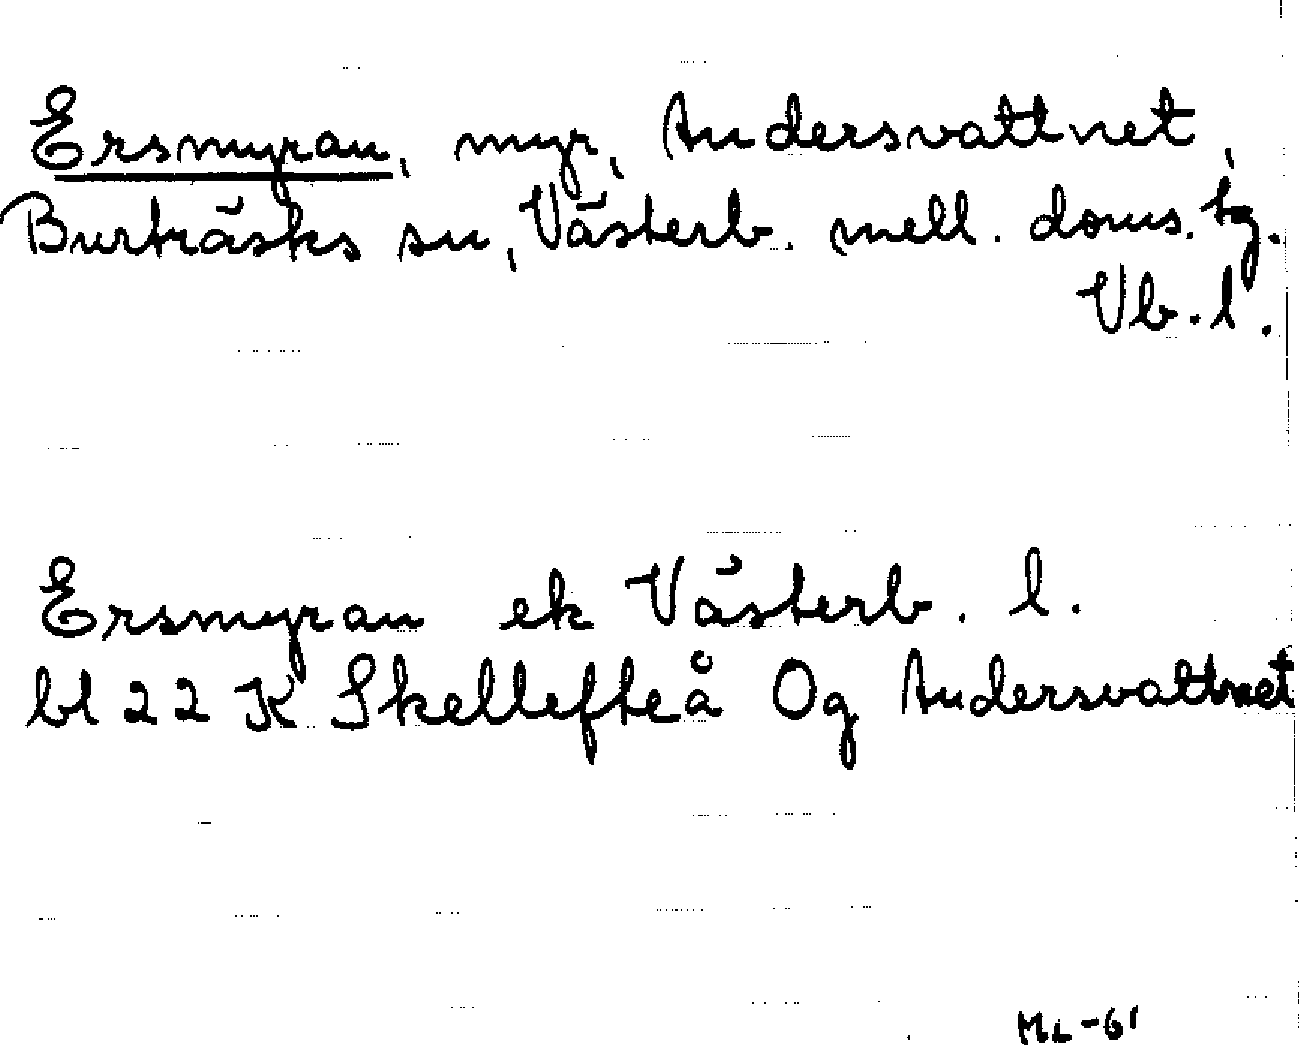 Ersmyran, myr, Andersvattnet,
Burträsks sn, Västerb. mell. doms. tg.
Vb. l.
Ersmyran ek Västerb. l.
bl 22 K Skellefteå Og Andersvattnet
ML -61